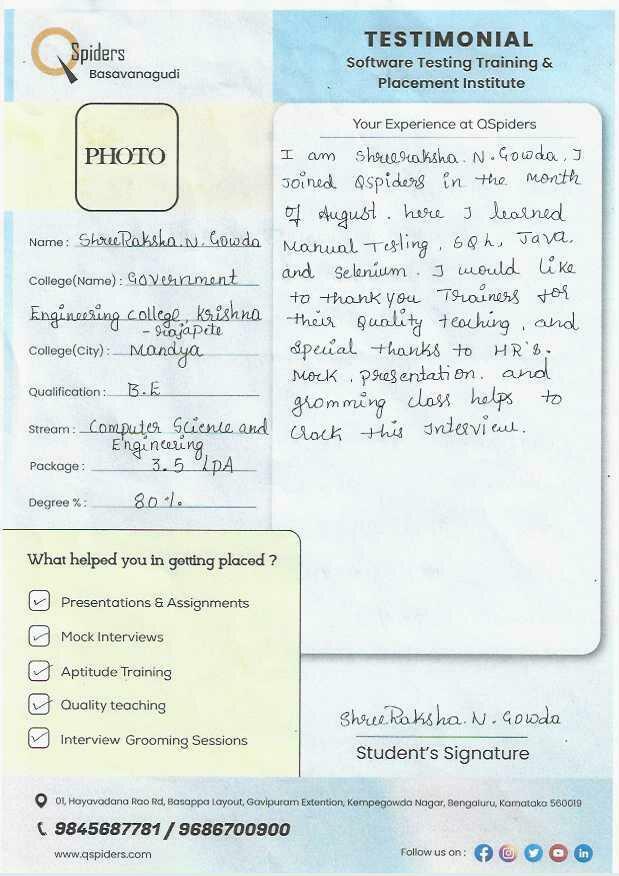 QSpiders
Basavanagudi
TESTIMONIAL
Software Testing Training &
Placement Institute
PHOTO
Name : ShreeRaksha.N.Gowda
College(Name) : Government
Engineering college, krishna
- rajapete
College(City) : Mandya
Qualification : B.E
Stream : Computer Science and
Engineering
Package : 3.5 LPA
Degree % : 80%
Your Experience at QSpiders
I am Shreeraksha.N.Gowda, I
Joined QSpiders in the month
of August. here I learned
Manual Testing, SQL, Java,
and Selenium. I would like
to thank you Trainers for
their Quality teaching, and
Special thanks to HR's.
Mock, presentation, and
gromming class helps to
Crack this Interview.
What helped you in getting placed ?
Presentations & Assignments
Mock Interviews
Aptitude Training
Quality teaching
Interview Grooming Sessions
ShreeRaksha.N.Gowda
Student's Signature
01, Hayavadana Rao Rd, Basappa Layout, Gavipuram Extention, Kempegowda Nagar, Bengaluru, Karnataka 560019
9845687781 / 9686700900
www.qspiders.com
Follow us on :